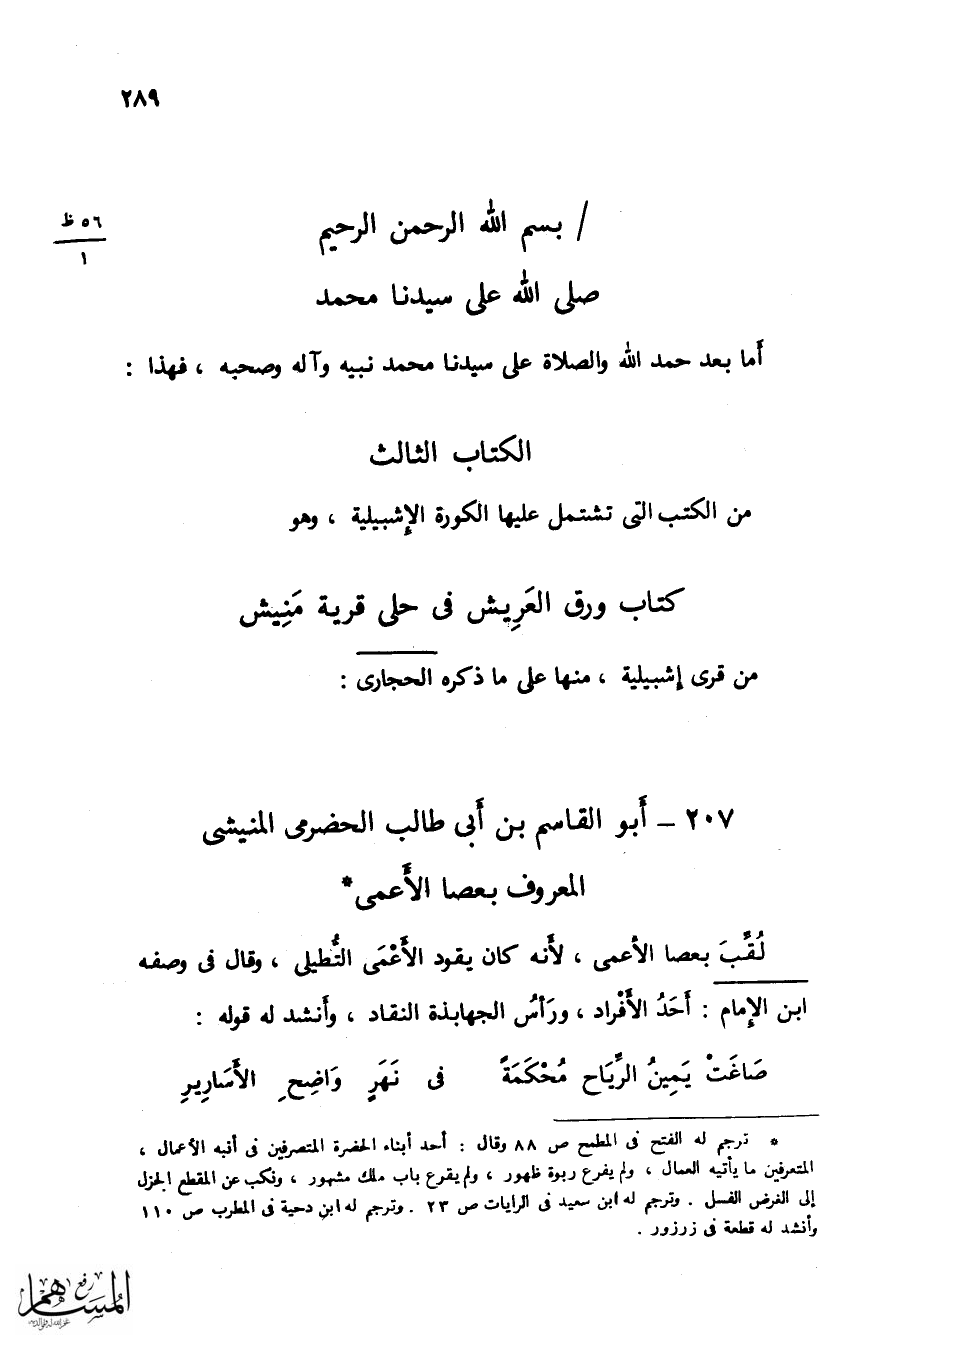 ٢٨٩
/ بسم الله الرحمن الرحيم
٥٦ ظ
١
صلى الله على سيدنا محمد
أما بعد حمد الله والصلاة على سيدنا محمد نبيه وآله وصحبه ، فهذا :
الكتاب الثالث
من الكتب التى تشتمل عليها الكورة الإشبيلية ، وهو
كتاب ورق العَرِيش فى حلى قرية مَنِيش
من قرى إشبيلية ، منها على ما ذكره الحجارى :
٢٠٧ – أَبو القاسم بن أَبى طالب الحضرمى المنيشى
المعروف بعصا الأَعمى*
لُقِّبَ بعصا الأعمى ، لأَنه كان يقود الأَعْمَى التُّطيلى ، وقال فى وصفه
ابن الإِمام : أَحَدُ الأَفْراد ، ورَأسُ الجهابذة النقاد ، وأَنشد له قوله :
صَاغَتْ يَمِينُ الرِّيَاح مُحْكَمَةً فى نَهَرٍ وَاضِحِ الأَسَارِيرِ
* ترجم له الفتح فى المطمح ص ٨٨ وقال : أحد أبناء الحضرة المتصرفين فى أنبه الأعمال ،
المتعرفين ما يأتيه العمال ، ولم يفرع ربوة ظهور ، ولم يقرع باب ملك مشهور ، ونكب عن المقطع الجزل
إلى الغرض الفسل . وترجم له ابن سعيد فى الرايات ص ٢٣ . وترجم له ابن دحية فى المطرب ص ١١٠
وأنشد له قطعة فى زرزور .
رفع
المساهم